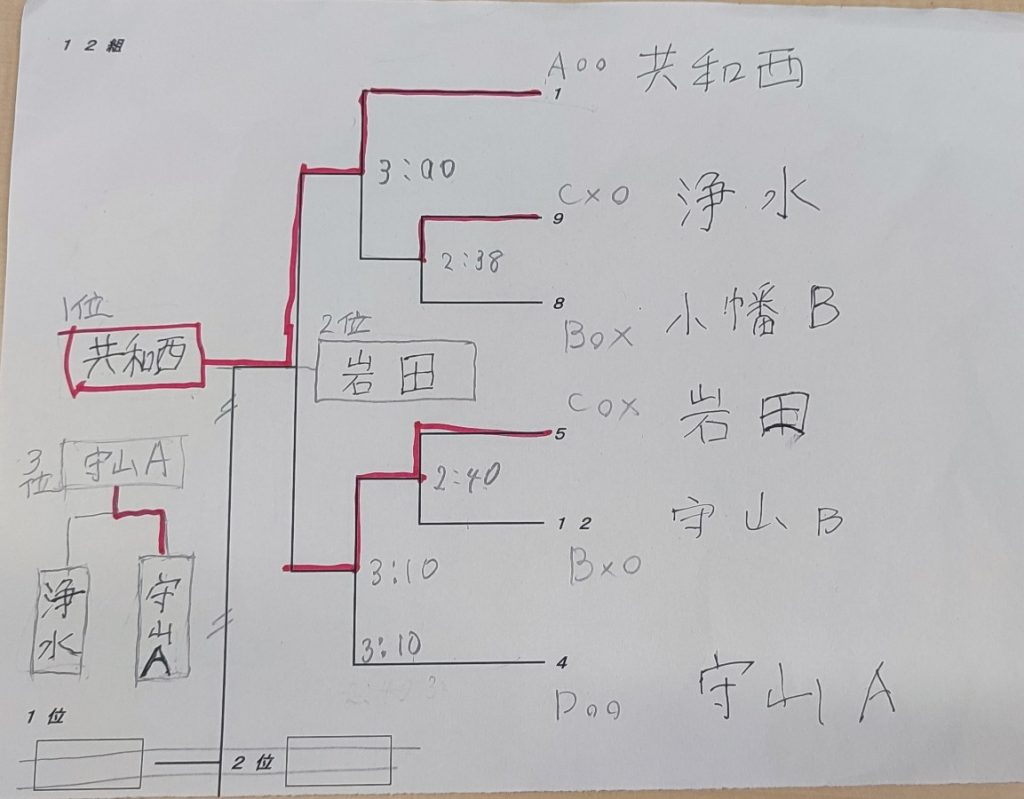 12組
A○○ 共和西
1
3:00
C×○ 浄水
9
2:38
8
B○× 小幡B
1位
共和西
2位
岩田
C○× 岩田
5
2:40
12 守山B
B×○
3位
守山A
浄水
守山A
3:10
3:10
4
D○○ 守山A
1位
2位